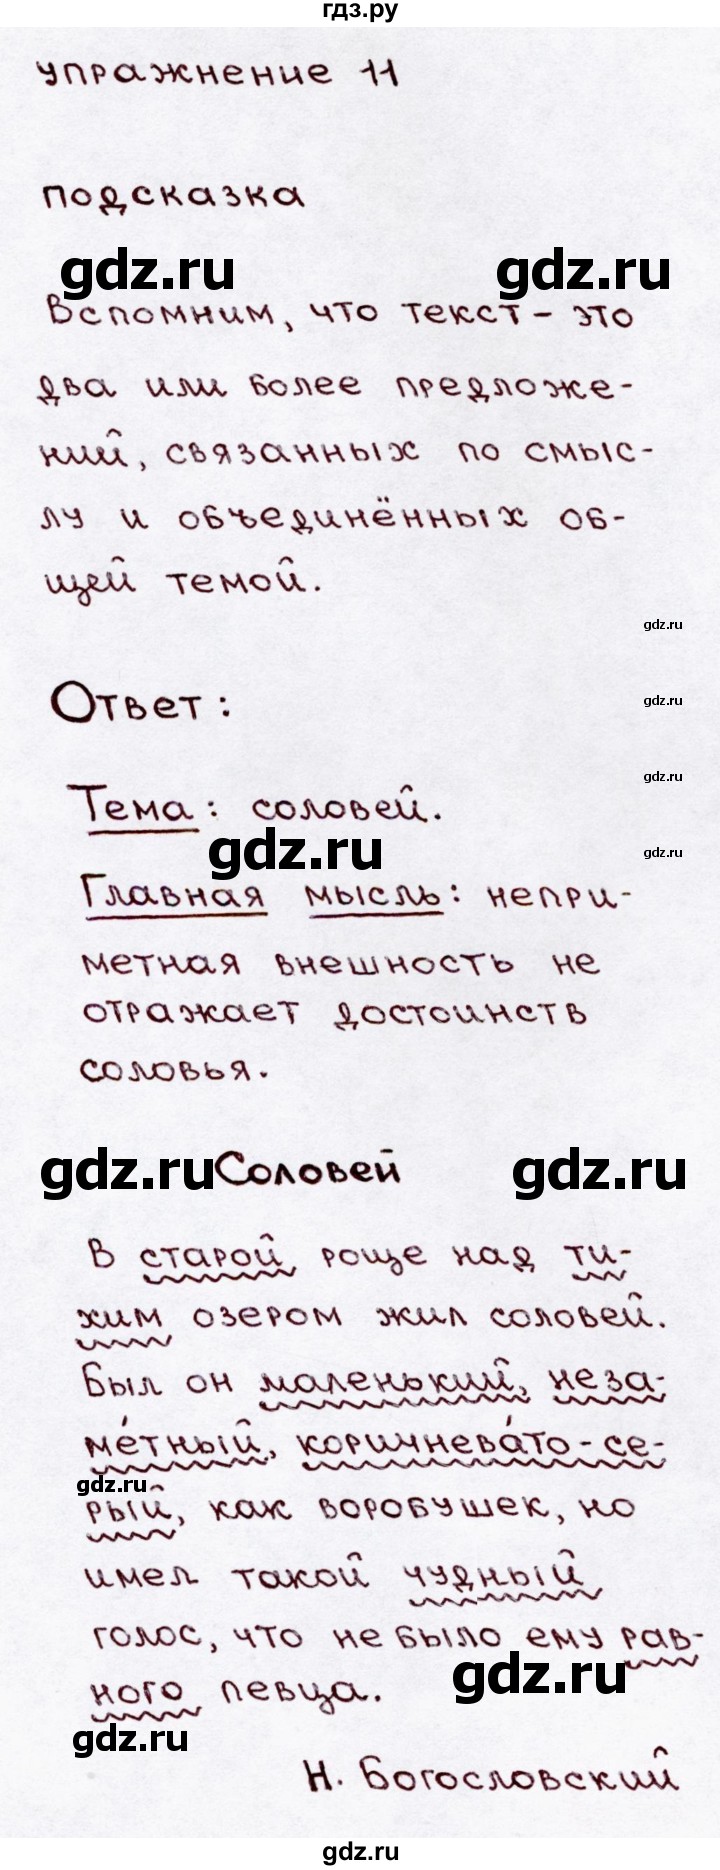 гдз.ру
упражнение 11
подсказка
gdz.ru gdz.ru
Вспомним, что текст - это
два или более предложе-
ний, связанных по смыс-
лу и объединённых об-
щей темой.
gdz.ru
Ответ:
gdz.ru
gdz.ru
Тема: соловей.
gdz.ru
gdz.ru
Главная мысль: непри-
метная внешность не
отражает достоинств
соловья.
gdz.ru Соловей gdz.ru
В старой роще над ти-
хим озером жил соловей.
Был он маленький, неза-
ме́тный, коричнева́то-се-
gdz.ru
рый, как воробушек, но
имел такой чудный
голос, что не было ему рав-
gdz.ru
ного певца.
gdz.ru
Н. Богословский
gdz.ru